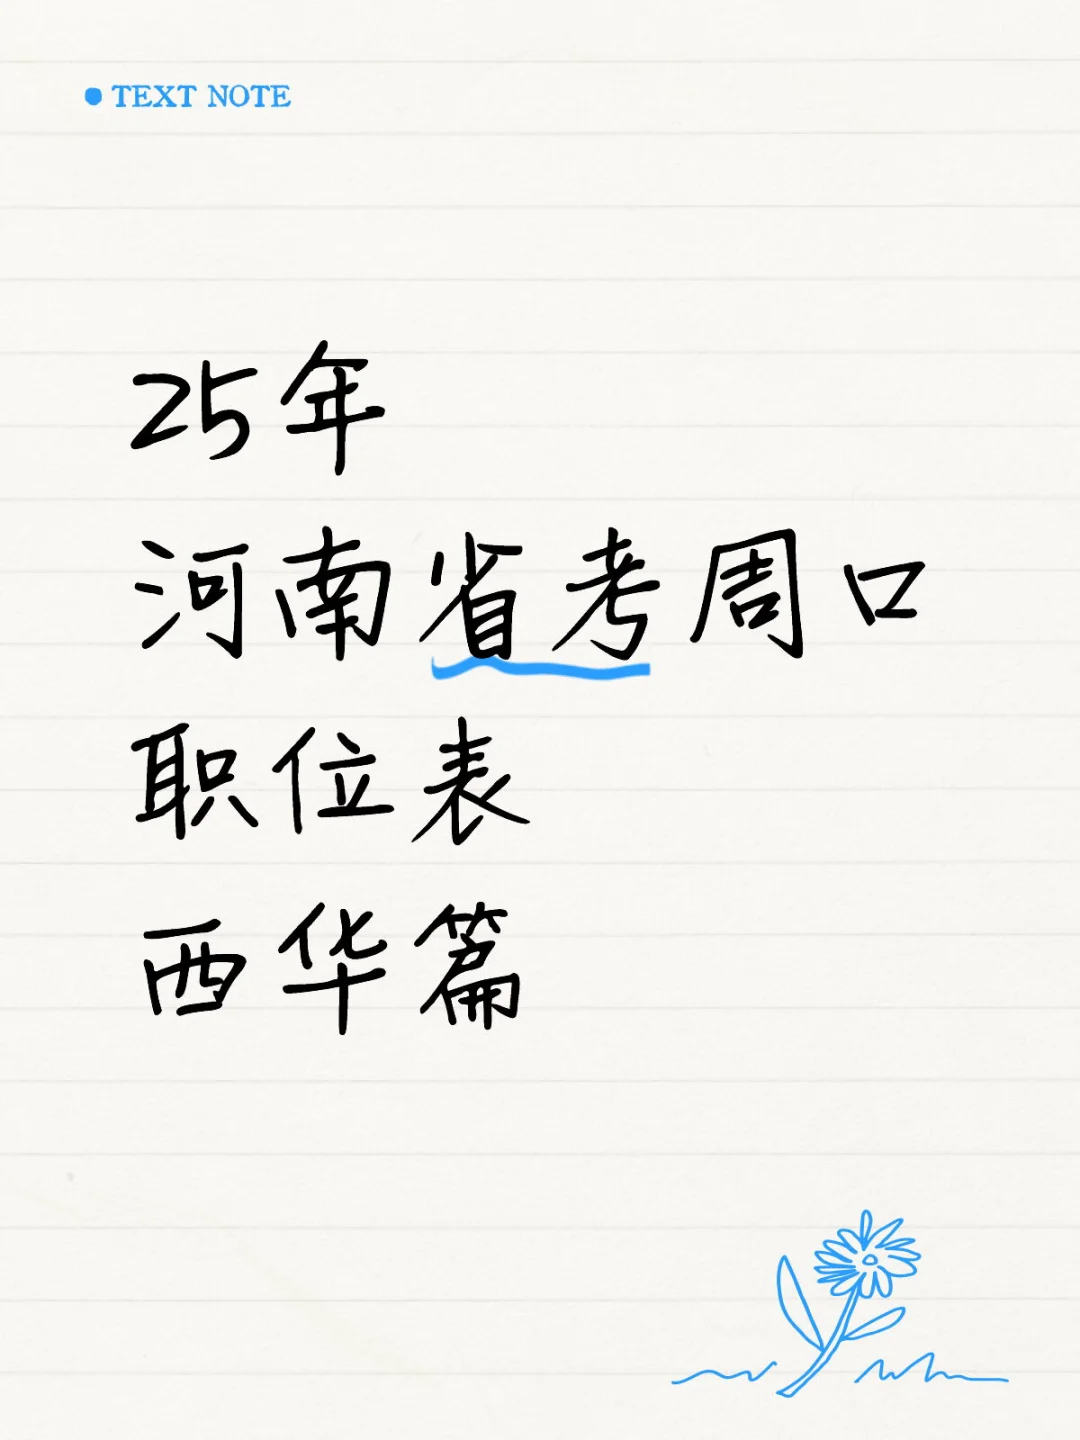 TEXT NOTE
25年
河南省考周口
职位表
西华篇